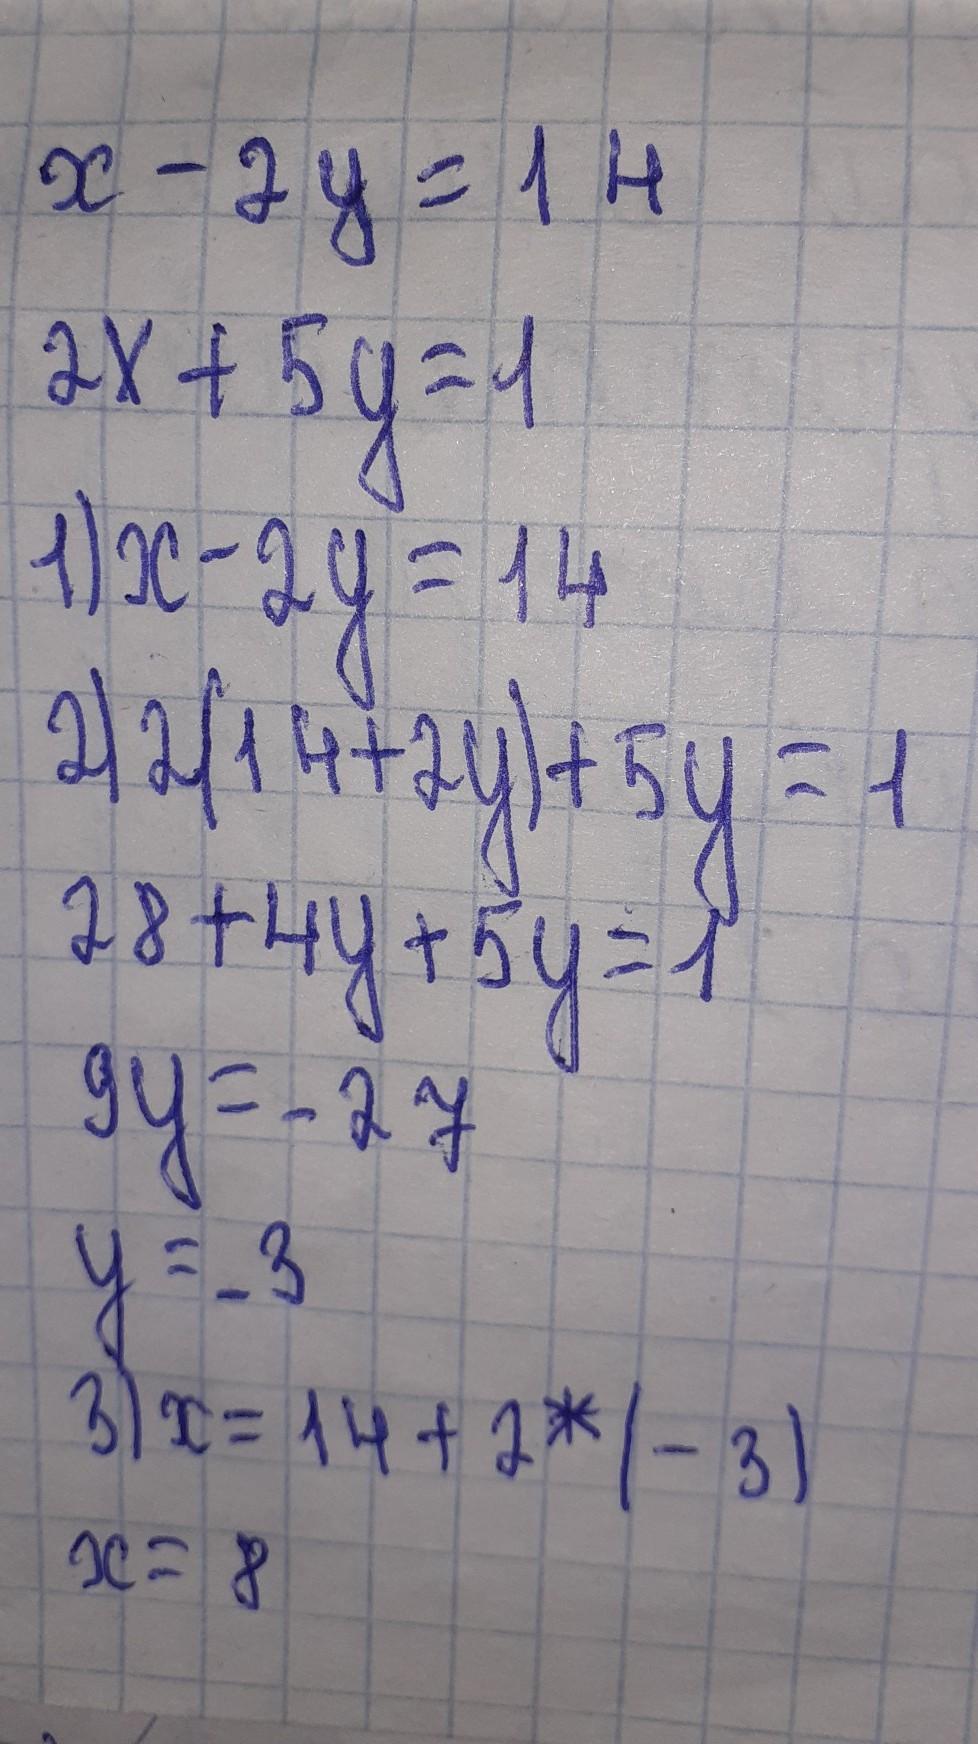 x - 2y = 14
2x + 5y = 1
1) x - 2y = 14
2) 2(14+2y)+5y = 1
28 + 4y + 5y = 1
9y = -27
y = -3
3) x = 14 + 2*(-3)
x = 8